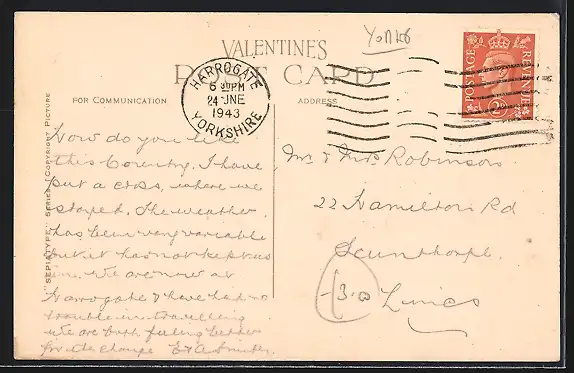 York
VALENTINES
POST CARD
FOR COMMUNICATION
ADDRESS
HARROGATE
6 30PM
24 JNE
1943
YORKSHIRE
POSTAGE
REVENUE
2D
"SEPIATYPE" SERIES (COPYRIGHT PICTURE
How do you like
this Coventry. I have
put a cross, where we
stayed. The weather
has been very variable
but it has not kept us
in. We are now at
Harrogate & have had no
trouble in travelling
We are both feeling better
for the change E & A
Mr & Mrs Robinson
22 Hamilton Rd
Scunthorpe
Lincs
3.0